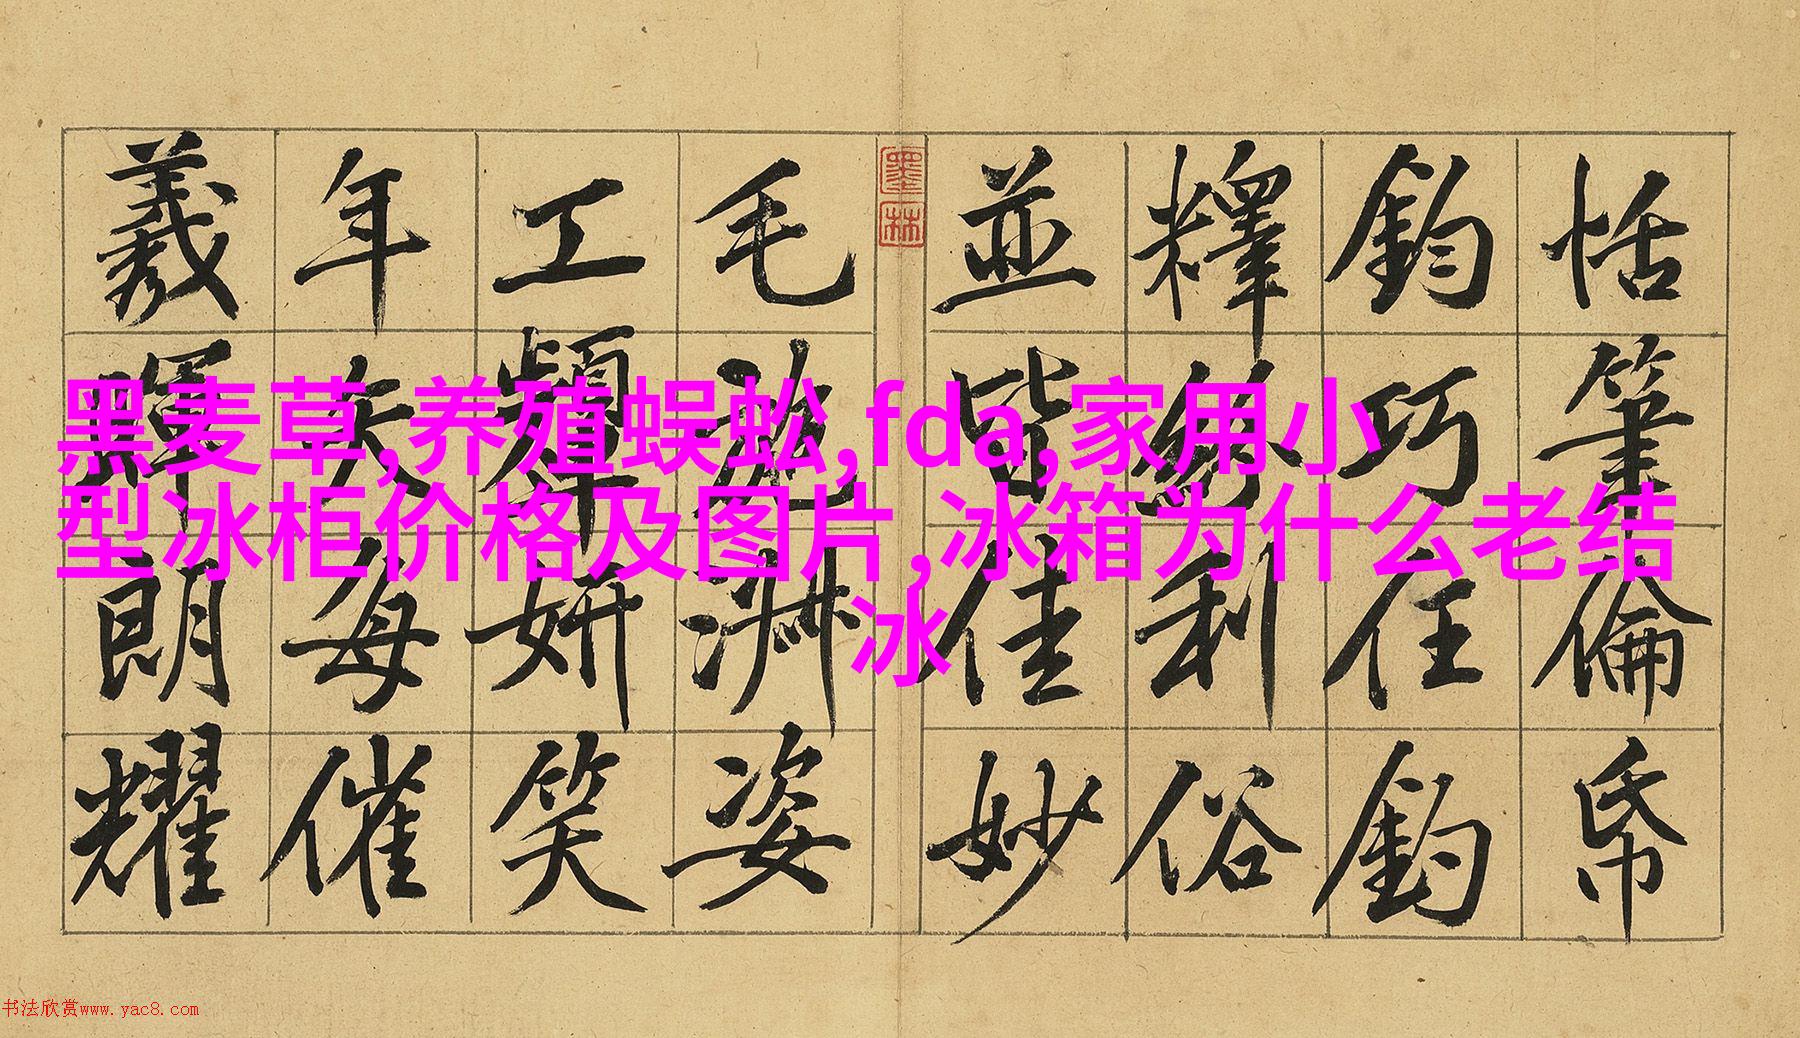 恬筆倫帋
鈞巧任釣
釋紛利俗
並皆佳妙
墨林
毛施淑姿
工顰妍笑
年矢每催
羲暉朗耀
黑麦草,养殖蜈蚣,fda,家用小
型冰柜价格及图片,冰箱为什么老结
冰
书法欣赏www.yac8.com